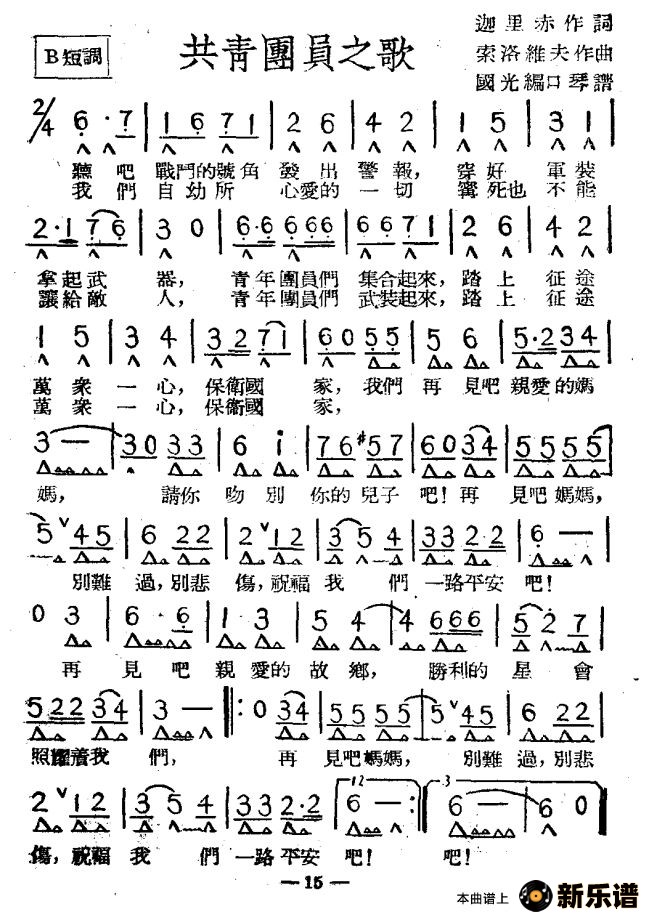 B短調
共青團員之歌
迦里赤作詞
索洛維夫作曲
國光編口琴譜
2/4 6·7 | 1 6 7 1 | 2 6 | 4 2 | 1 5 | 3 1 |
聽吧 戰鬥的號角 發出 警報, 穿好 軍裝
我們 自幼所 心愛的 一切 寗死也 不能
2·1 7 6 | 3 0 | 6·6 6 6 6 | 6 6 7 1 | 2 6 | 4 2 |
拿起武 器, 青年團員們 集合起來, 踏上 征途
讓給敵 人, 青年團員們 武裝起來, 踏上 征途
1 5 | 3 4 | 3 2 7 1 | 6 0 5 5 | 5 6 | 5·2 3 4 |
萬衆 一心, 保衛國 家, 我們 再見吧 親愛的媽
萬衆 一心, 保衛國 家,
3 — | 3 0 3 3 | 6 i | 7 6 #5 7 | 6 0 3 4 | 5 5 5 5 |
媽, 請你 吻別 你的兒子 吧! 再 見吧媽媽,
5 ∨ 4 5 | 6 2 2 | 2 ∨ 1 2 | 3 5 4 | 3 3 2 2·2 | 6 — |
別難 過,別悲 傷,祝福 我們 一路平安 吧!
0 3 | 6·6 | 1 3 | 5 4 | 4 6 6 6 | 5 2 7 |
再 見吧 親愛的 故鄉, 勝利的 星會
5 2 2 3 4 | 3 — :| 0 3 4 | 5 5 5 5 | 5 ∨ 4 5 | 6 2 2 |
照耀着我 們, 再 見吧媽媽, 別難 過,別悲
12 3
2 ∨ 1 2 | 3 5 4 | 3 3 2 2·2 | 6 — :| 6 — | 6 0 |
傷,祝福 我們 一路平安 吧! 吧!
— 15 —
本曲谱上 新乐谱